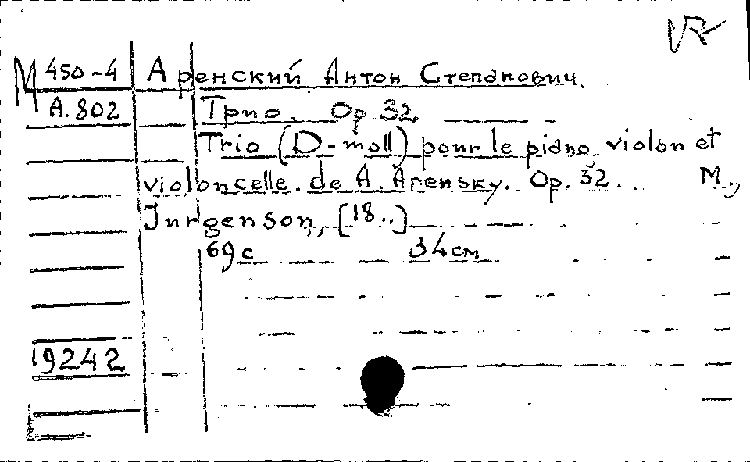 М 450-4 Аренский Антон Степанович.
А.802 Трио. Op 32
Trio (D-moll) pour le piano, violon et
violoncelle. de A. Arensky. Op. 32... М.,
Jurgenson, [18..]
69 с 34см
9242